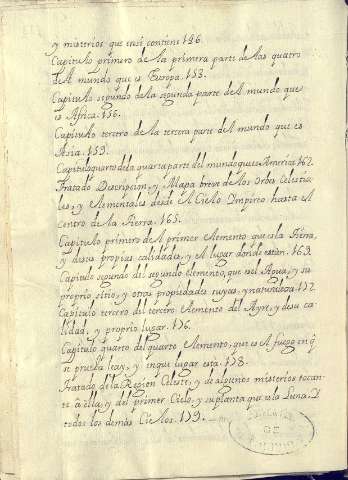 y misterios que ensi contiene 146.
Capitulo primero de la primera parte de las quatro
del mundo que es Europa. 153.
Capitulo segundo de la segunda parte del mundo que
es Africa. 156.
Capitulo tercero de la tercera parte del mundo que es
Asia. 159.
Capitulo quarto dela quarta parte del mundo que es America 162.
Tratado Descripcion, y Mapa breve de los Orbes Celestia-
les, y Elementales desde el Cielo Impireo hasta el
Centro de la Tierra. 165.
Capitulo primero del primer Elemento que es la Tierra,
y desus propias calidades, y el lugar donde estan. 169.
Capitulo segundo del segundo elemento, que es el Agua, y su
proprio sitio, y otras propiedades suyas, y naturaleza. 172
Capitulo tercero del tercero Elemento del Ayre, y de su ca
lidad, y proprio lugar. 176.
Capitulo quarto del quarto Elemento, que es el fuego en q̃
se prueba le ay, y in que lugar esta. 178.
Tratado de la Region Celeste, y de algunos misterios tocan-
te â ella, y del primer Cielo, y su planta que es la Luna. D
todos los demàs Cielos. 179.